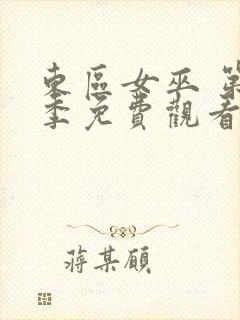 東區女巫 第
季免費觀看
蔣某頎